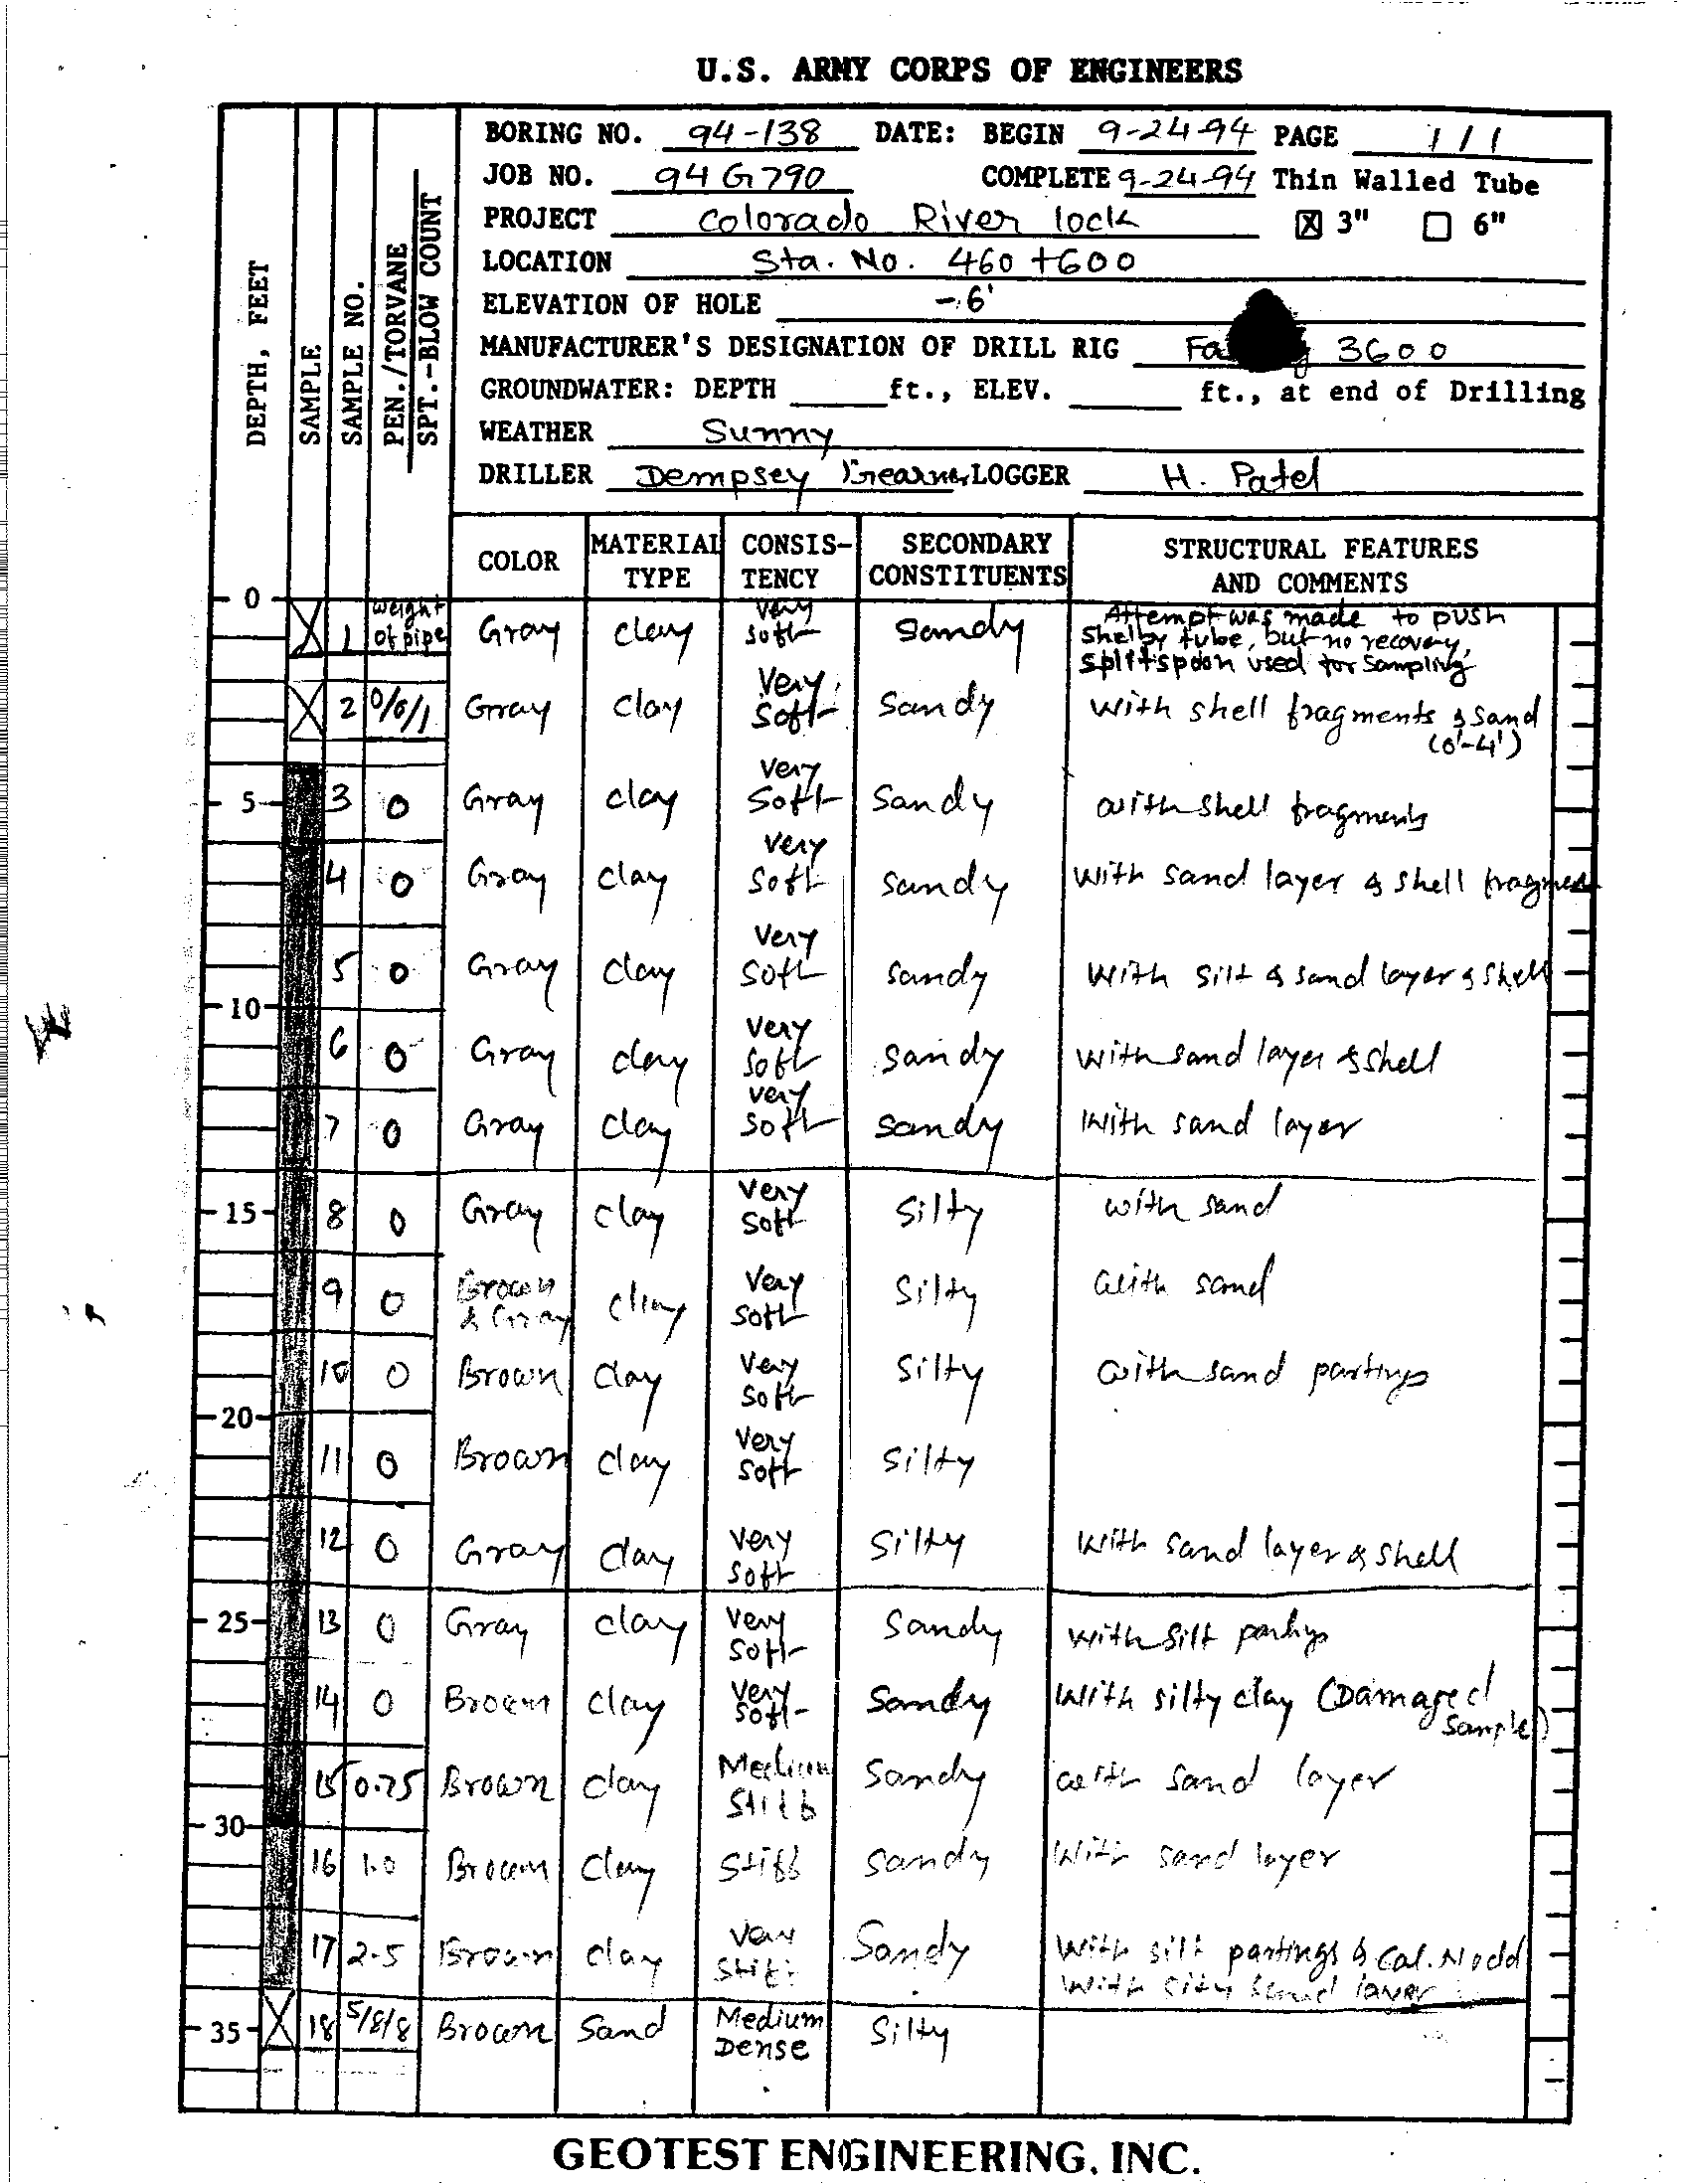 U.S. ARMY CORPS OF ENGINEERS
BORING NO. 94-138 DATE: BEGIN 9-24-94 PAGE 1/1
JOB NO. 94G790 COMPLETE 9-24-94 Thin Walled Tube
PROJECT Colorado River lock ☒ 3" ☐ 6"
LOCATION Sta. No. 460+600
ELEVATION OF HOLE -6'
MANUFACTURER'S DESIGNATION OF DRILL RIG 3600
GROUNDWATER: DEPTH ft., ELEV. ft., at end of Drilling
WEATHER Sunny
DRILLER Dempsey LOGGER H. Patel
DEPTH, FEET
SAMPLE
SAMPLE NO.
PEN./TORVANE
SPT.-BLOW COUNT
COLOR MATERIAL TYPE CONSIS-TENCY SECONDARY CONSTITUENTS STRUCTURAL FEATURES AND COMMENTS
0
1 weight of pipe Gray clay very soft Sandy Attempt was made to push
Shelby tube, but no recovery,
splitspoon used for sampling
2 0/0/1 Gray clay Very Soft Sandy with shell fragments & sand
(0'-4')
5 3 0 Gray clay Very Soft Sandy with shell fragments
4 0 Gray clay Very Soft sandy with sand layer & shell
5 0 Gray clay Very Soft sandy with silt & sand layer & shell
10
6 0 Gray clay Very Soft sandy with sand layer & shell
7 0 Gray clay very Soft sandy With sand layer
15 8 0 Gray clay Very Soft Silty with sand
9 0 Brown & Gray clay Very Soft Silty with sand
10 0 Brown Clay Very Soft Silty with sand partings
20
11 0 Brown clay Very Soft Silty
12 0 Gray clay Very Soft Silty with sand layer & shell
25 13 0 Gray clay Very Soft Sandy with silt partings
14 0 Brown clay Very Soft Sandy With silty clay (Damaged
Sample)
15 0.75 Brown clay Medium Stiff Sandy with sand layer
30
16 1.0 Brown Clay Stiff Sandy With sand layer
17 2.5 Brown clay Very Stiff Sandy With silt partings & Cal. Nodd
With silty sand layer
35 18 5/8/8 Brown Sand Medium Dense Silty
GEOTEST ENGINEERING, INC.